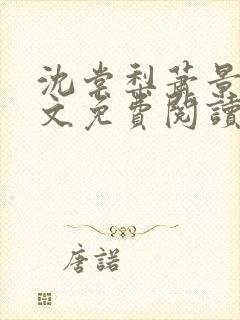 沈棠梨萧景
文免費閱讀
唐諾